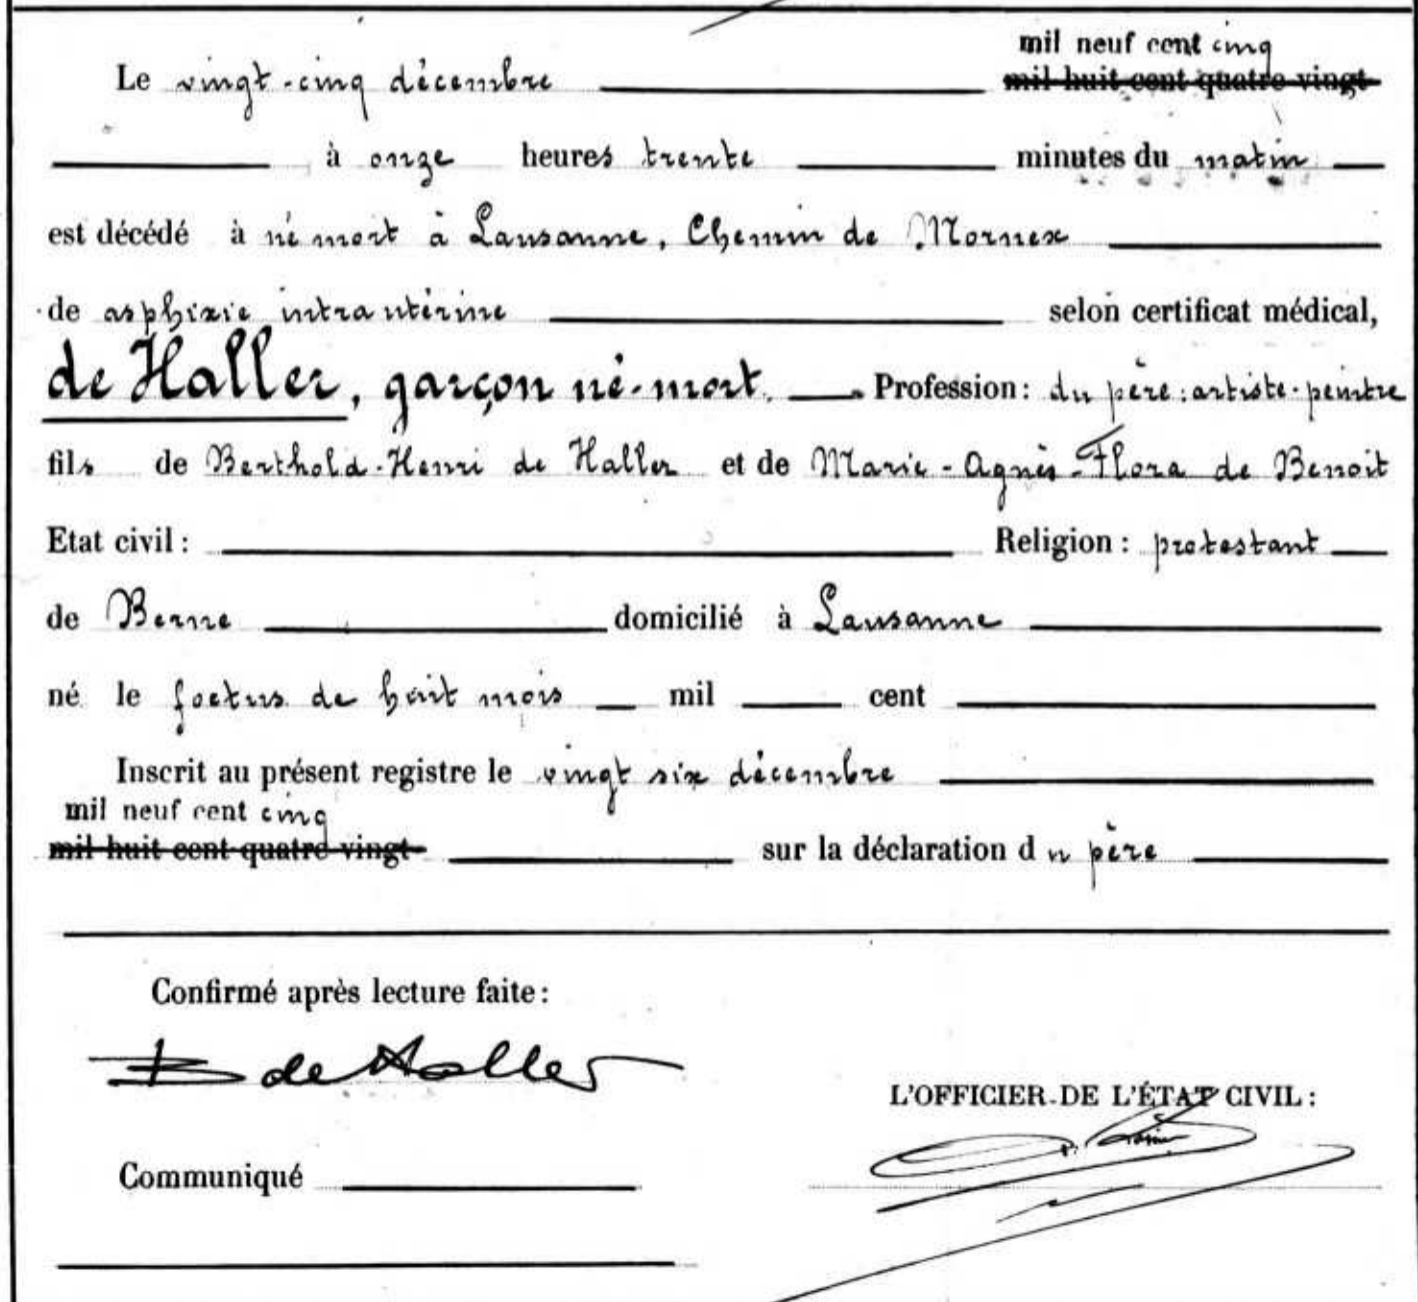 mil neuf cent cinq
Le vingt-cinq décembre mil huit cent quatre-vingt-
à onze heures trente minutes du matin
est décédé à né mort à Lausanne, Chemin de Mornex
de asphixie intrautérine selon certificat médical,
de Haller, garçon né-mort. Profession: du père: artiste-peintre
fils de Berthold-Henri de Haller et de Marie-Agnès-Flora de Benoit
Etat civil: Religion: protestant
de Berne domicilié à Lausanne
né le foetus de huit mois mil cent
Inscrit au présent registre le vingt six décembre
mil neuf cent cinq
mil huit cent quatre-vingt- sur la déclaration du père
Confirmé après lecture faite:
B de Haller
L'OFFICIER DE L'ÉTAT CIVIL:
Communiqué